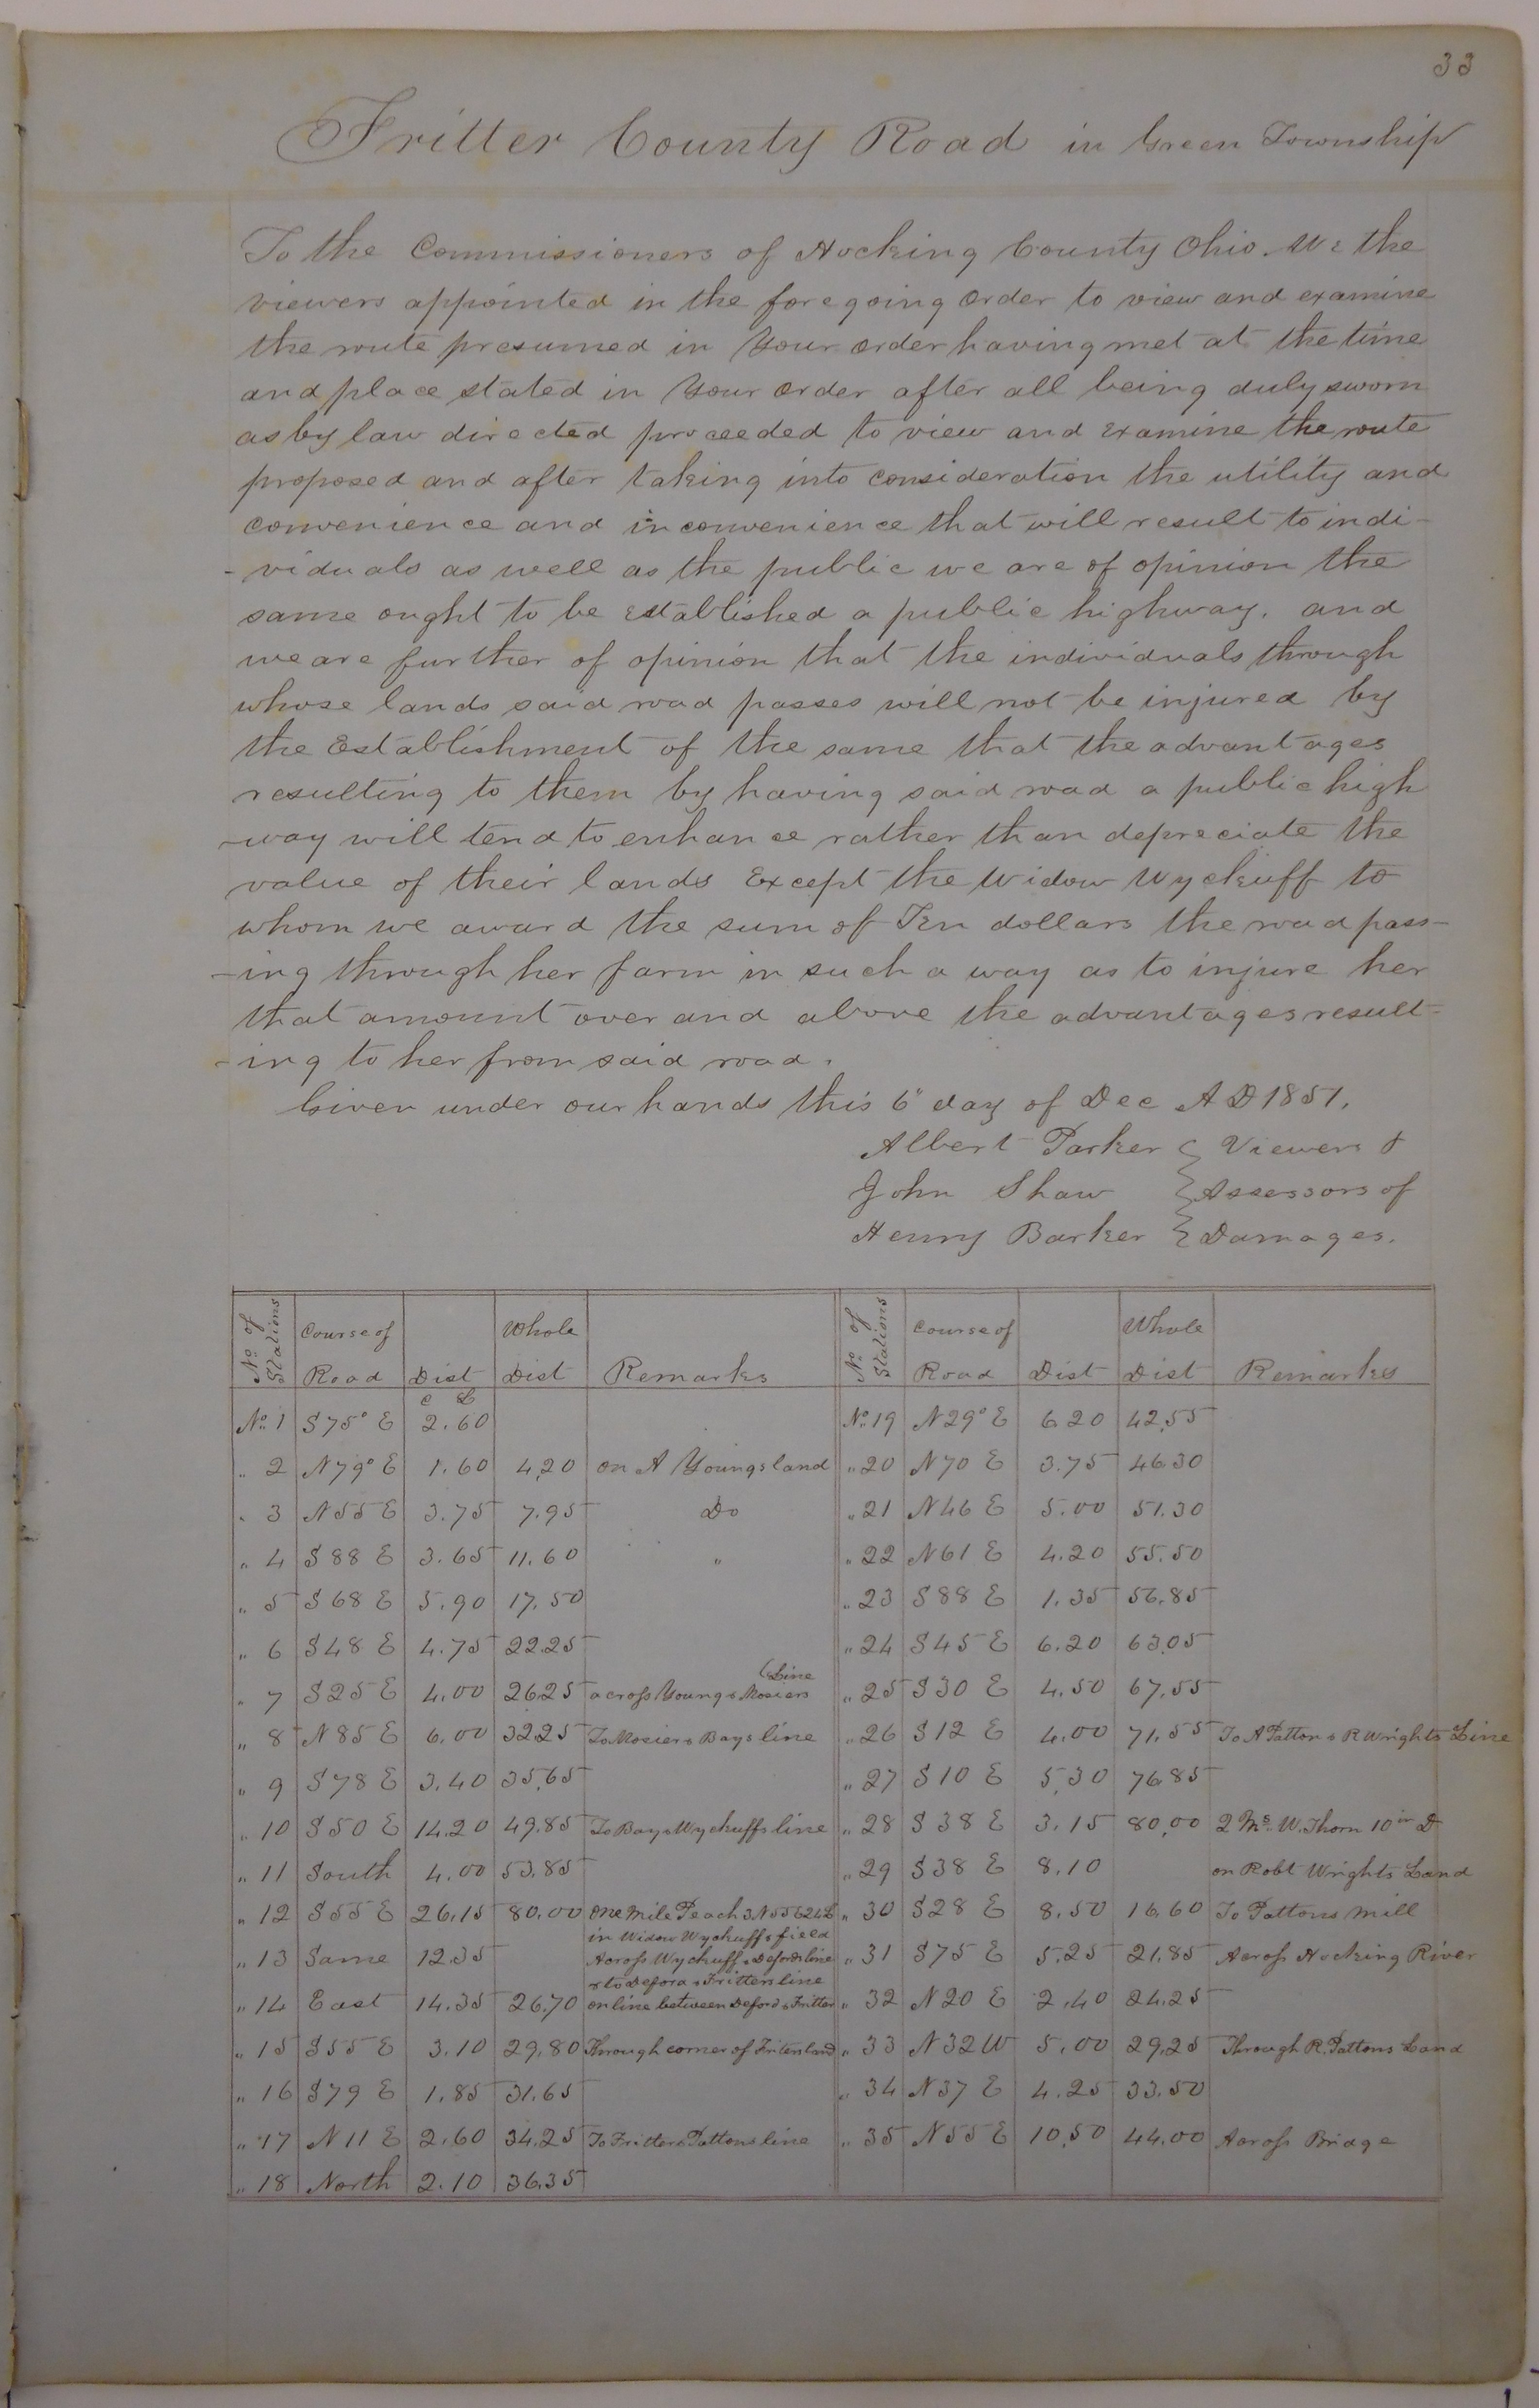 33
Fritter County Road in Green Township
To the Commissioners of Hocking County Ohio. We the
viewers appointed in the foregoing order to view and examine
the route presumed in Your order having met at the time
and place stated in Your order after all being duly sworn
as by law directed proceeded to view and examine the route
proposed and after taking into consideration the utility and
convenience and inconvenience that will result to indi-
-viduals as well as the public we are of opinion the
same ought to be established a public highway. and
we are further of opinion that the individuals through
whose lands said road passes will not be injured by
the Establishment of the same that the advantages
resulting to them by having said road a public high
-way will tend to enhance rather than depreciate the
value of their lands Except the Widow Wyckuff to
whom we award the sum of Ten dollars the road pass-
-ing through her farm in such a way as to injure her
that amount over and above the advantages result-
-ing to her from said road.
Given under our hands this 6" day of Dec A D 1851.
Albert Parker } Viewers &
John Shaw } Assessors of
Henry Barker } Damages.
No. of Stations Course of Road Dist Whole Dist Remarks No. of Stations Course of Road Dist Whole Dist Remarks
C L
No. 1 S 75° E 2.60 No. 19 N 29° E 6.20 42.55
" 2 N 79° E 1.60 4.20 on A Youngs land " 20 N 70 E 3.75 46.30
" 3 N 55 E 3.75 7.95 Do " 21 N 46 E 5.00 51.30
" 4 S 88 E 3.65 11.60 " " 22 N 61 E 4.20 55.50
" 5 S 68 E 5.90 17.50 " 23 S 88 E 1.35 56.85
" 6 S 48 E 4.75 22.25 " 24 S 45 E 6.20 63.05
" 7 S 25 E 4.00 26.25 across Young & Mosiers Line " 25 S 30 E 4.50 67.55
" 8 N 85 E 6.00 32.25 To Mosier & Bays line " 26 S 12 E 4.00 71.55 To A Patton & R Wrights Line
" 9 S 78 E 3.40 35.65 " 27 S 10 E 5.30 76.85
" 10 S 50 E 14.20 49.85 To Bay & Wyckuffs line " 28 S 38 E 3.15 80.00 2 Ms. W. Thorn 10 in D
" 11 South 4.00 53.85 " 29 S 38 E 8.10 on Robt Wrights Land
" 12 S 55 E 26.15 80.00 One Mile Peach 3 N 55 E 24 L " 30 S 28 E 8.50 16.60 To Pattons Mill
in Widow Wyckuffs field
" 13 Same 12.35 Across Wyckuff & Defords line " 31 S 75 E 5.25 21.85 Across Hocking River
& to Deford & Fritters line
" 14 East 14.35 26.70 on line between Deford & Fritter " 32 N 20 E 2.40 24.25
" 15 S 55 E 3.10 29.80 Through corner of Friters land " 33 N 32 W 5.00 29.25 Through R. Pattons Land
" 16 S 79 E 1.85 31.65 " 34 N 37 E 4.25 33.50
" 17 N 11 E 2.60 34.25 To Fritter & Pattons line " 35 N 55 E 10.50 44.00 Across Bridge
" 18 North 2.10 36.35